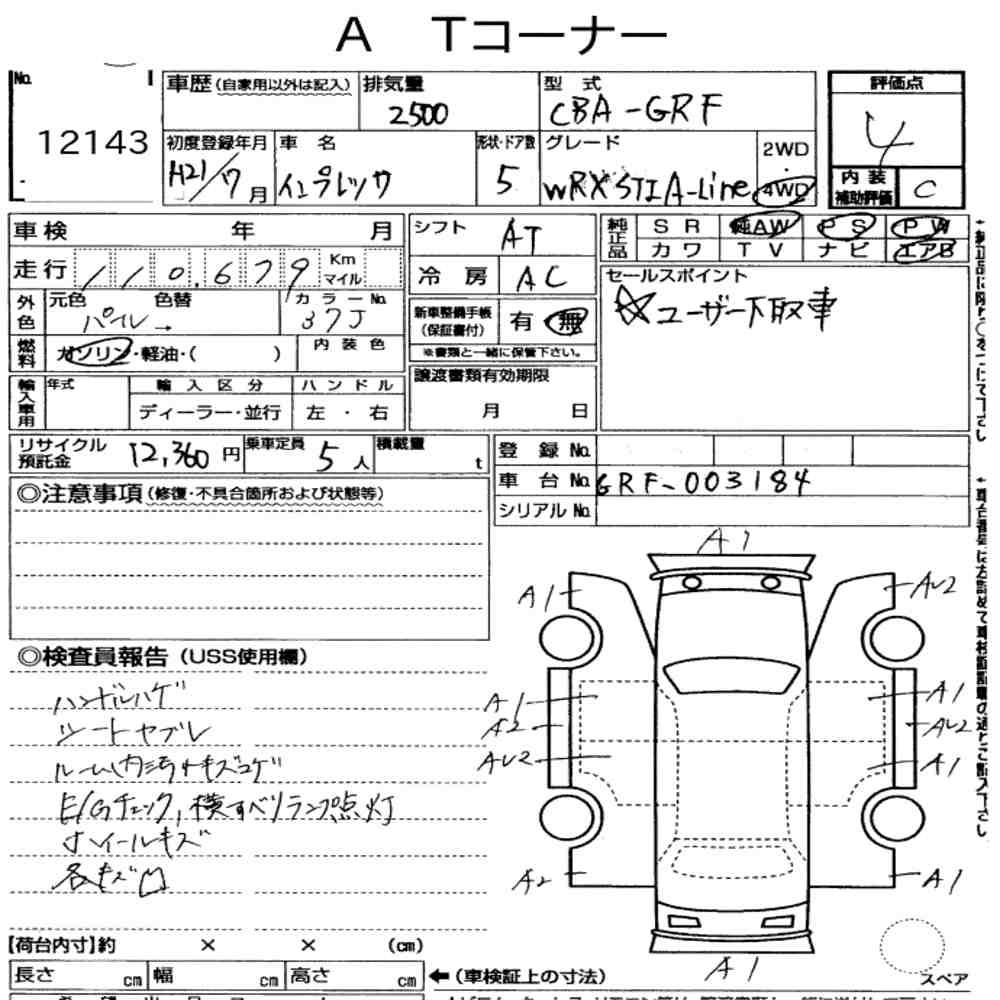 A Tコーナー
No. 12143
車歴(自家用以外は記入) 排気量 2500
型式 CBA-GRF
評価点 4
内装補助評価 C
初度登録年月 H21/7月
車名 インプレッサ
形状・ドア数 5
グレード WRX STI A-Line
2WD
4WD
車検 年 月
シフト AT
純正品 SR 純AW PS PW
カワ TV ナビ エアB
走行 110,679 Km マイル
冷房 AC
セールスポイント
☆ユーザー下取車
外色 元色 パール→ 色替 カラーNo. 37J
新車整備手帳(保証書付) 有 無
※書類と一緒に保管下さい。
燃料 ガソリン・軽油・( )
内装色
譲渡書類有効期限
月 日
輸入車用 年式 輸入区分 ハンドル
ディーラー・並行 左・右
リサイクル預託金 12,360円
乗車定員 5人
積載量 t
登録No.
車台No. GRF-003184
シリアルNo.
◎注意事項(修復・不具合箇所および状態等)
◎検査員報告(USS使用欄)
ハンドルハゲ
シートヤブレ
ルーム内汚れキズコゲ
E/Gチェック,横すべりランプ点灯
ホイールキズ
各キズ凹
A1
A1 AU2
A1 A1
A2 AU2
AU2 A1
A2 A1
A1
【荷台内寸】約 × × (cm)
長さ cm 幅 cm 高さ cm
←(車検証上の寸法)
スペア